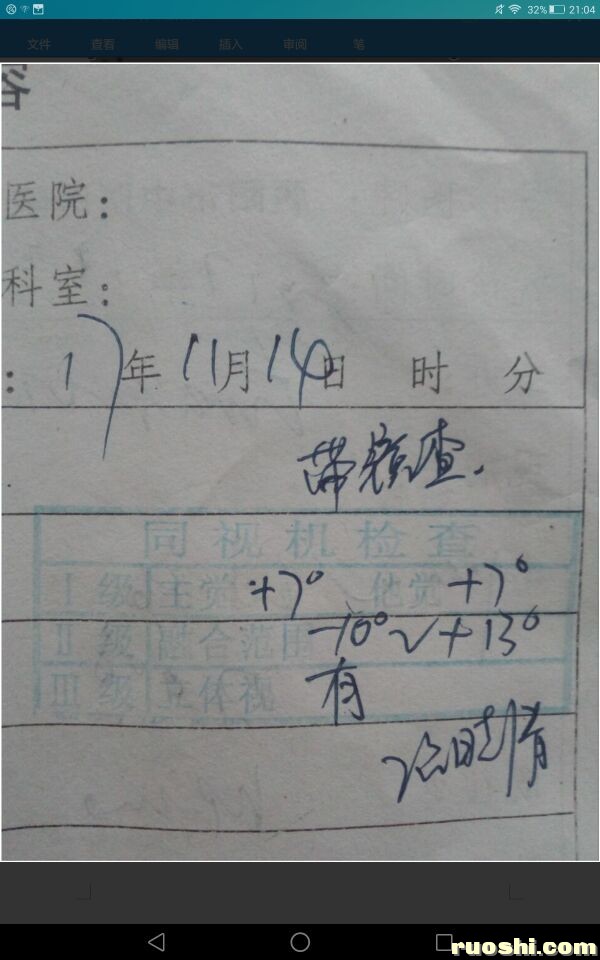 32% 21:04
文件 查看 编辑 插入 审阅 笔
容
医院:
科室:
: 17年11月14日 时 分
带镜查.
同视机检查
I级 主觉 +7° 他觉 +7°
II级 融合范围 -10°~+13°
III级 立体视 有
ruoshi.com